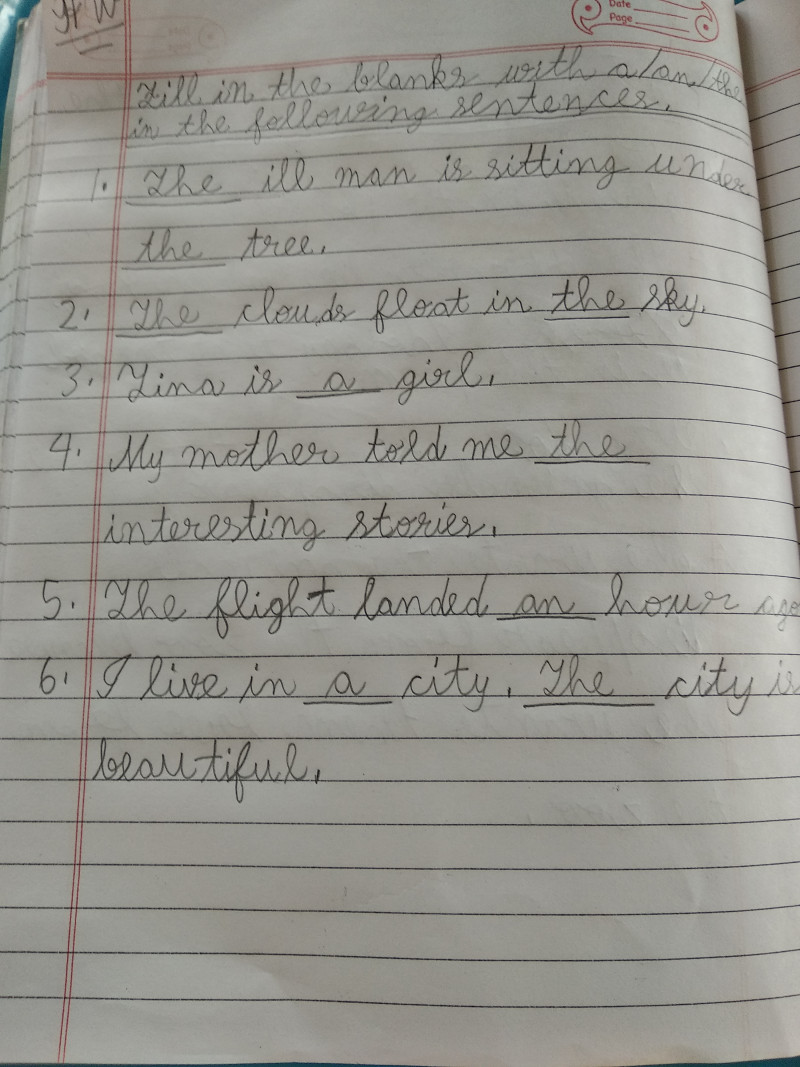 H.W
Date
Page
Fill in the blanks with a/an/the
in the following sentences.
1. The ill man is sitting under
the tree.
2. The clouds float in the sky.
3. Tina is a girl.
4. My mother told me the
interesting stories.
5. The flight landed an hour ago
6. I live in a city. The city is
beautiful.